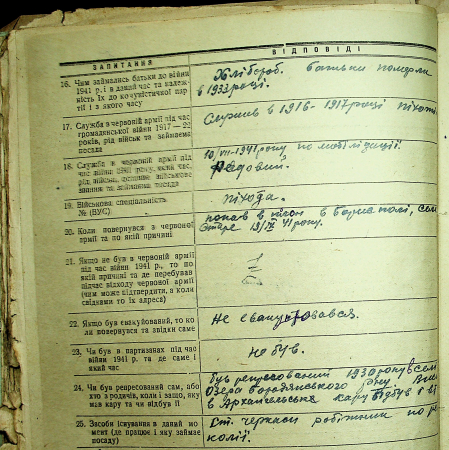 ЗАПИТАННЯ
ВІДПОВІДІ
16. Чим займались батьки до війни
1941 р. і в даний час та належ-
ність їх до комуністичної пар-
тії і з якого часу
Хлібороб. батьки померли
в 1933 році.
17. Служба в червоній армії під час
громадянської війни 1917—22
років, рід військ та займаєма
посада
Служив в 1916-1917 році піхоті
18. Служба в червоній армії під
час війни 1941 року,
рід військ, військове
звання та займаєма посада
10/VII-1941 року по мобілізації.
Рядовий.
19. Військова спеціальність
№ (ВУС)
піхода.
20. Коли повернувся з червоної
армії та по якій причині
попав в плєн в селі
Старе 19/IX 41 року.
21. Якщо не був в червоній армії
під час війни 1941 р., то по
якій причині та де перебував
підчас відходу червоної армії
(чим може підтвердити, а коли
свідками то їх адреса)
22. Якщо був евакуйований, то ко-
ли повернувся та звідки саме
Не евакуювався.
23. Чи був в партизанах під час
війни 1941 р. та де саме і
який час
Не був.
24. Чи був репресований сам, або
хто з родичів, коли і защо, яку
мав кару та чи відбув її
був репресований 1930 року в сел
в Архангельськ кару відбув
25. Засоби існування в даний мо-
мент (де працює і яку займає
посаду)
Ст. черкаси робітник по
колії.